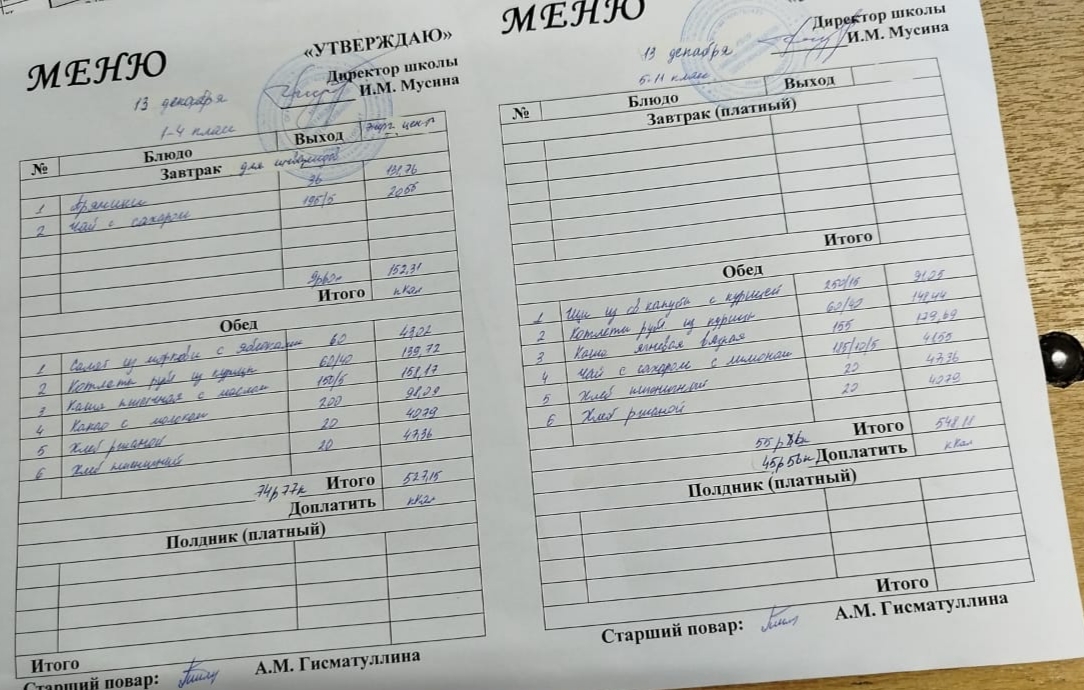 МЕНЮ
«УТВЕРЖДАЮ»
Директор школы
И.М. Мусина
13 декабря
1-4 класс
№ Блюдо Выход Энерг. цен-ть
Завтрак для инвалидов
1 Пряники 36 131,76
2 Чай с сахаром 195/5 20,55
Итого 152,31
кКал
Обед
1 Салат из моркови с яблоками 60 43,02
2 Котлеты руб из курицы 60/40 139,72
3 Каша пшеничная с маслом 150/5 158,17
4 Какао с молоком 200 98,09
5 Хлеб ржаной 20 40,79
6 Хлеб пшеничный 20 47,36
74р77к Итого 527,15
Доплатить кКал
Полдник (платный)
Итого
Старший повар: А.М. Гисматуллина
МЕНЮ
Директор школы
И.М. Мусина
13 декабря
5-11 класс
№ Блюдо Выход
Завтрак (платный)
Итого
Обед
1 Щи из св капусты с курицей 250/15 91,05
2 Котлеты руб из курицы 60/40
3 Каша ячневая вязкая 155 179,69
4 Чай с сахаром с лимоном 185/10/5 41,55
5 Хлеб пшеничный 20 47,36
6 Хлеб ржаной 20 40,79
Итого 548,11
45р56к Доплатить кКал
Полдник (платный)
Итого
Старший повар: А.М. Гисматуллина